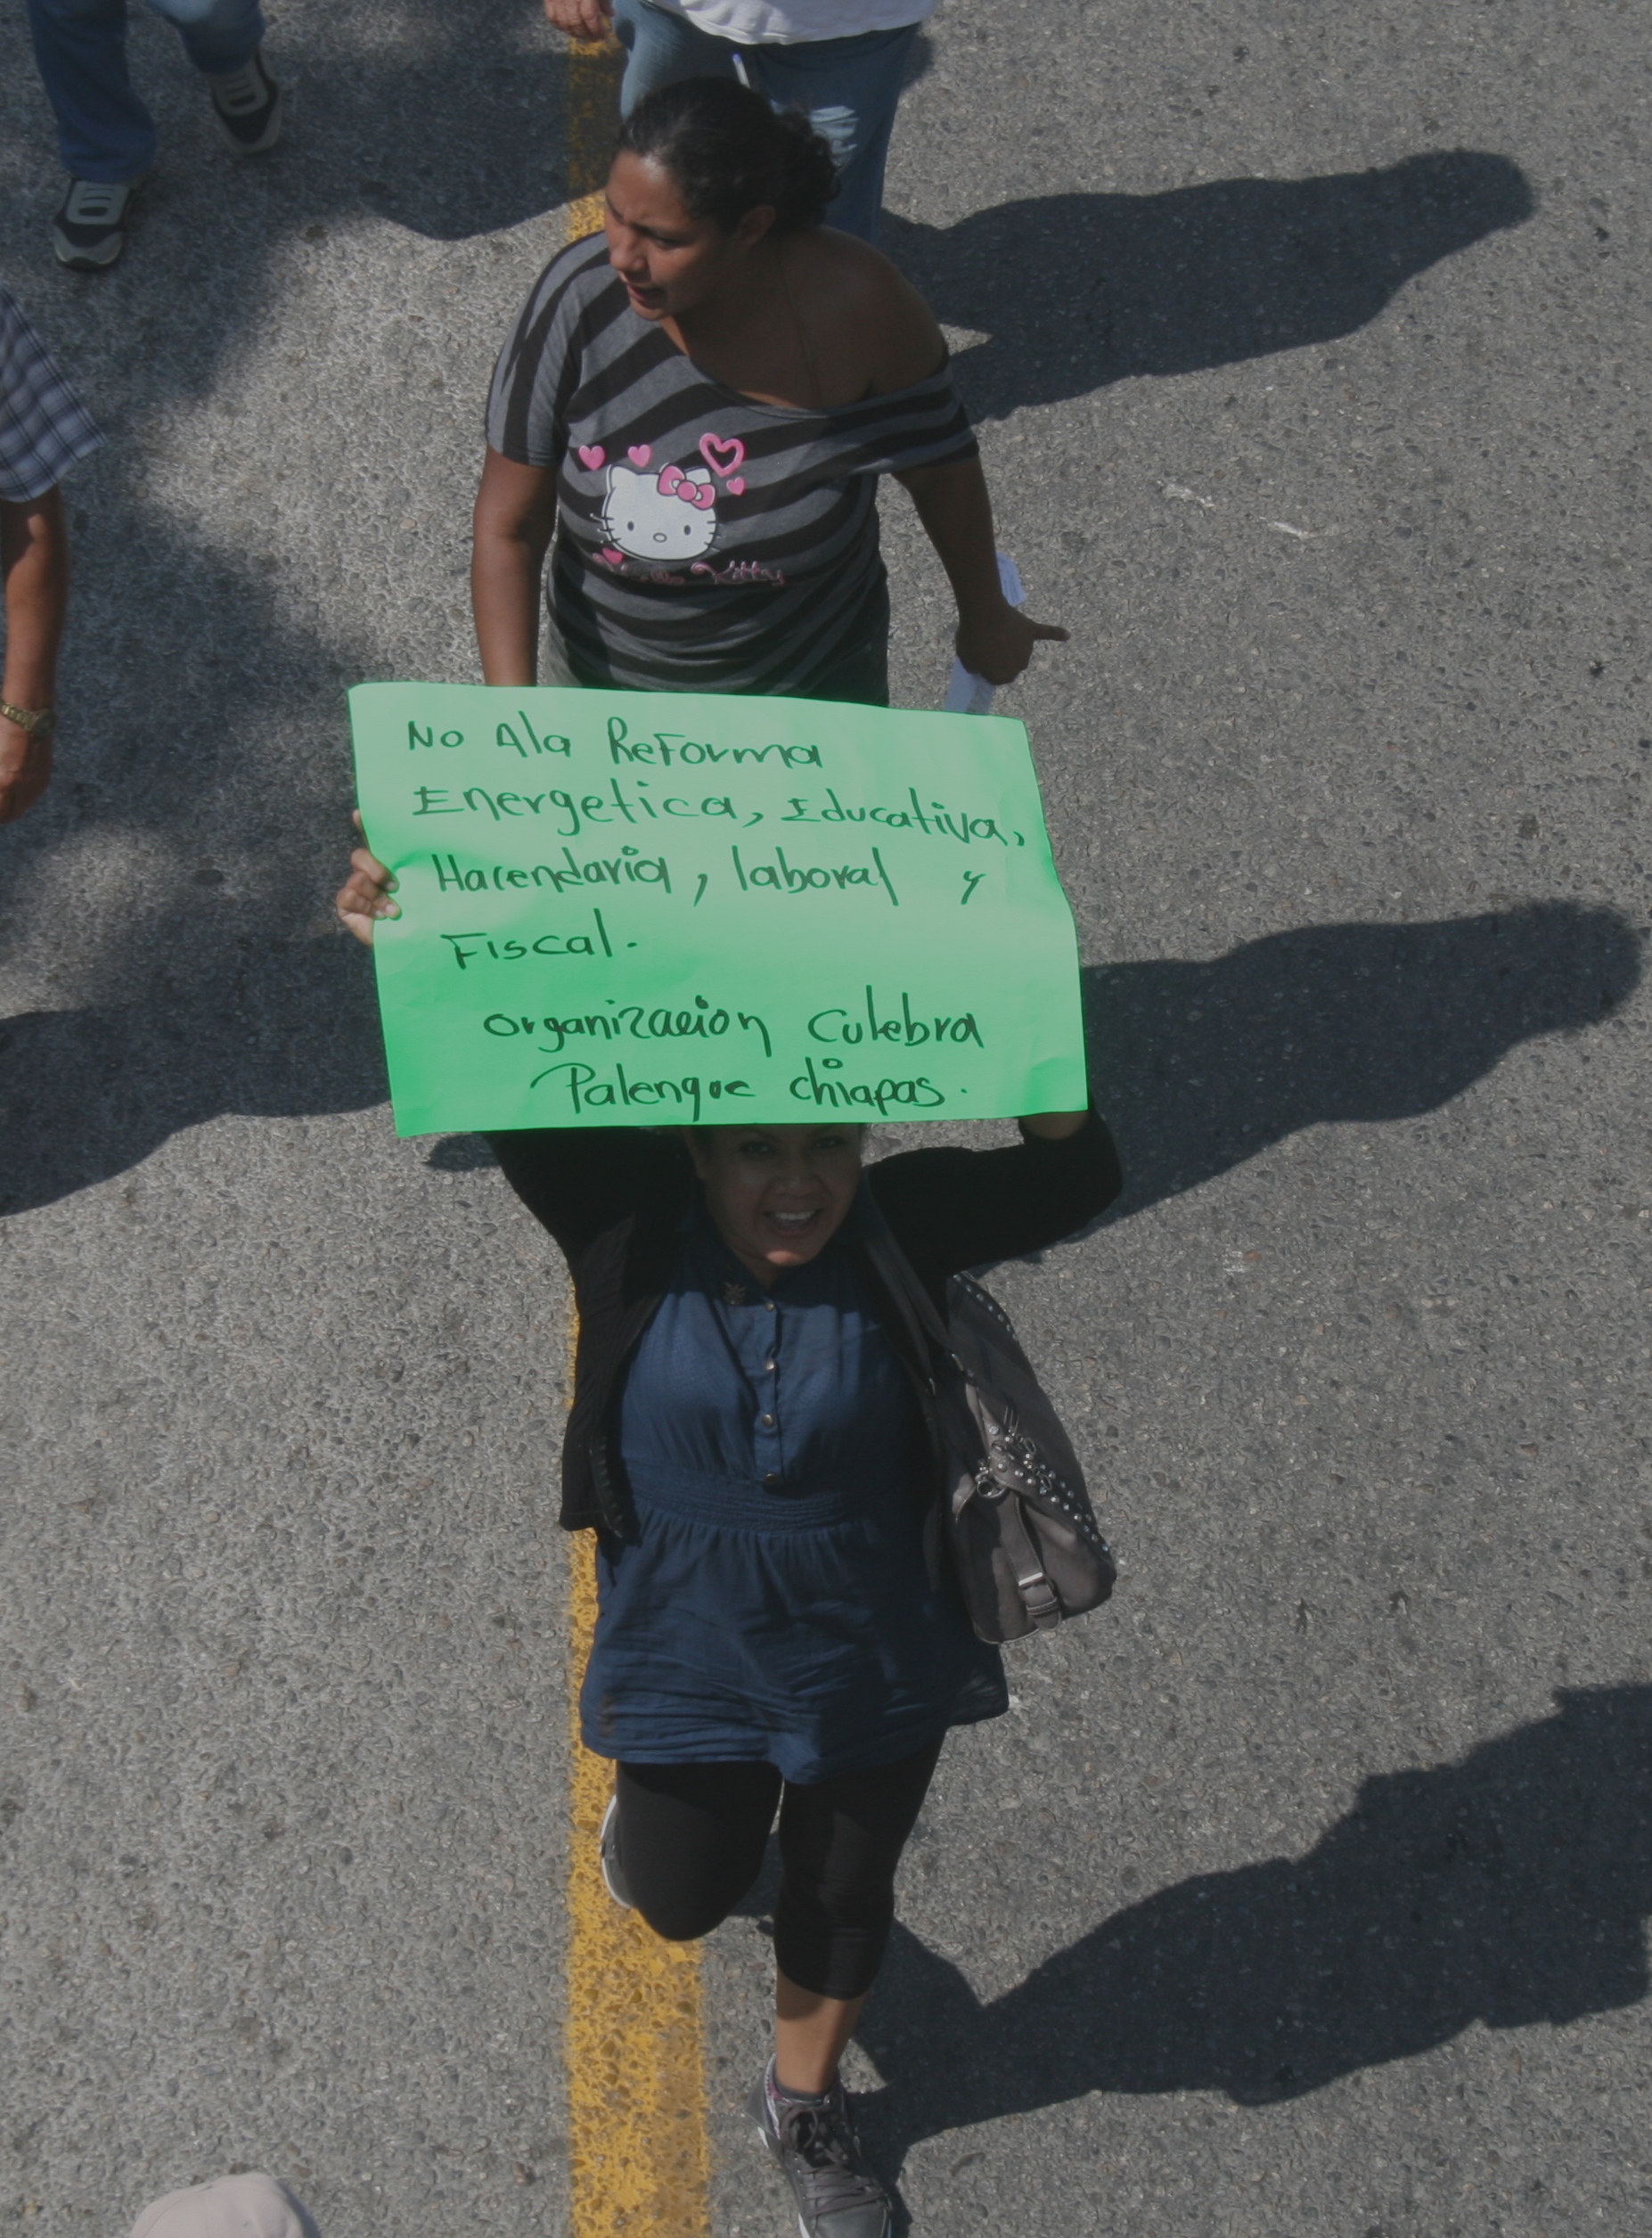 Hello Kitty
No Ala Reforma
Energetica, Educativa,
Hacendaria, laboral y
Fiscal.
organización Culebra
Palenque chiapas.